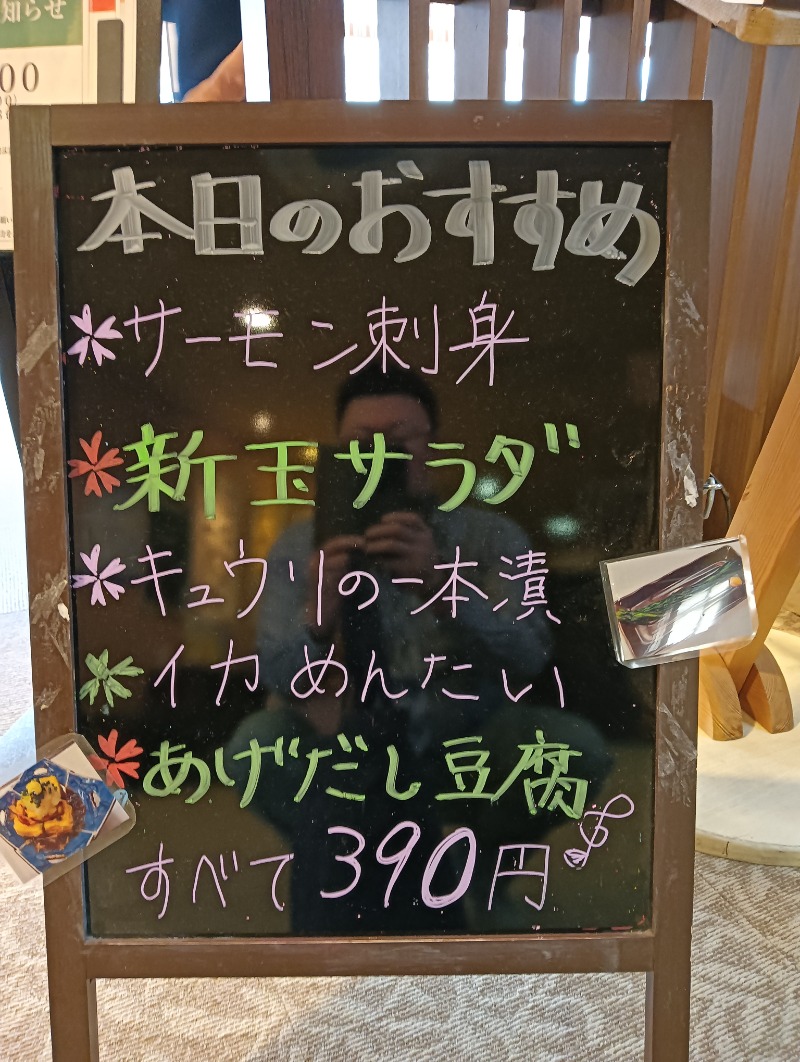 知らせ
00
本日のおすすめ
サーモン刺身
新玉サラダ
キュウリの一本漬
イカめんたい
あげだし豆腐
すべて390円